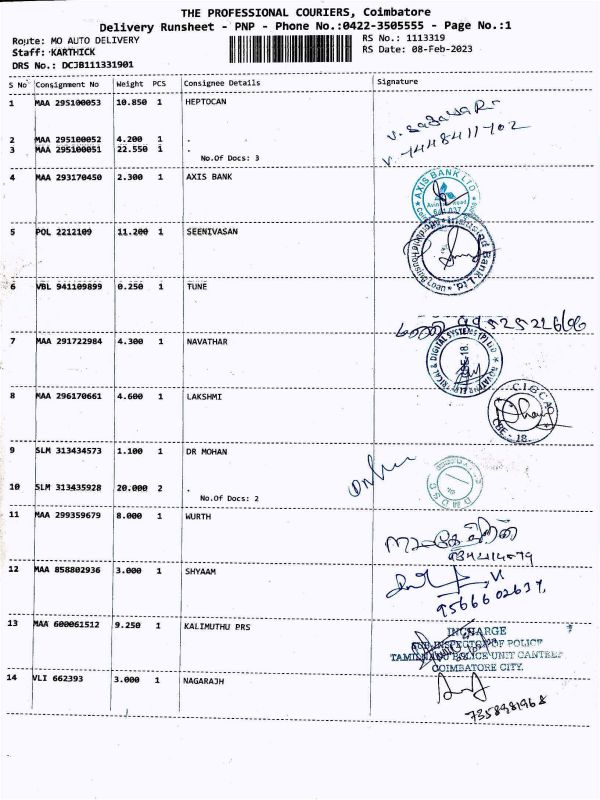 THE PROFESSIONAL COURIERS, Coimbatore
Delivery Runsheet - PNP - Phone No.:0422-3505555 - Page No.:1
Route: MO AUTO DELIVERY RS No.: 1113319
Staff: KARTHICK RS Date: 08-Feb-2023
DRS No.: DCJB111331901
S No Consignment No Weight PCS Consignee Details Signature
1 MAA 295100053 10.850 1 HEPTOCAN
2 MAA 295100052 4.200 1 .
3 MAA 295100051 22.550 1 .
No.Of Docs: 3
4 MAA 293170450 2.300 1 AXIS BANK
AXIS BANK LTD
5 POL 2212109 11.200 1 SEENIVASAN
Bank Ltd
6 VBL 941109899 0.250 1 TUNE
7 MAA 291722984 4.300 1 NAVATHAR
& DIGITAL SYSTEMS (P) LTD
8 MAA 296170661 4.600 1 LAKSHMI
CBE - 18.
9 SLM 313434573 1.100 1 DR MOHAN
10 SLM 313435928 20.000 2 .
No.Of Docs: 2
DMDSC
11 MAA 299359679 8.000 1 WURTH
12 MAA 858802936 3.000 1 SHYAAM
13 MAA 600061512 9.250 1 KALIMUTHU PRS
INCHARGE
SUB INSPECTOR OF POLICE
TAMILNADU POLICE UNIT CANTEEN
COIMBATORE CITY.
14 VLI 662393 3.000 1 NAGARAJH
7358981968